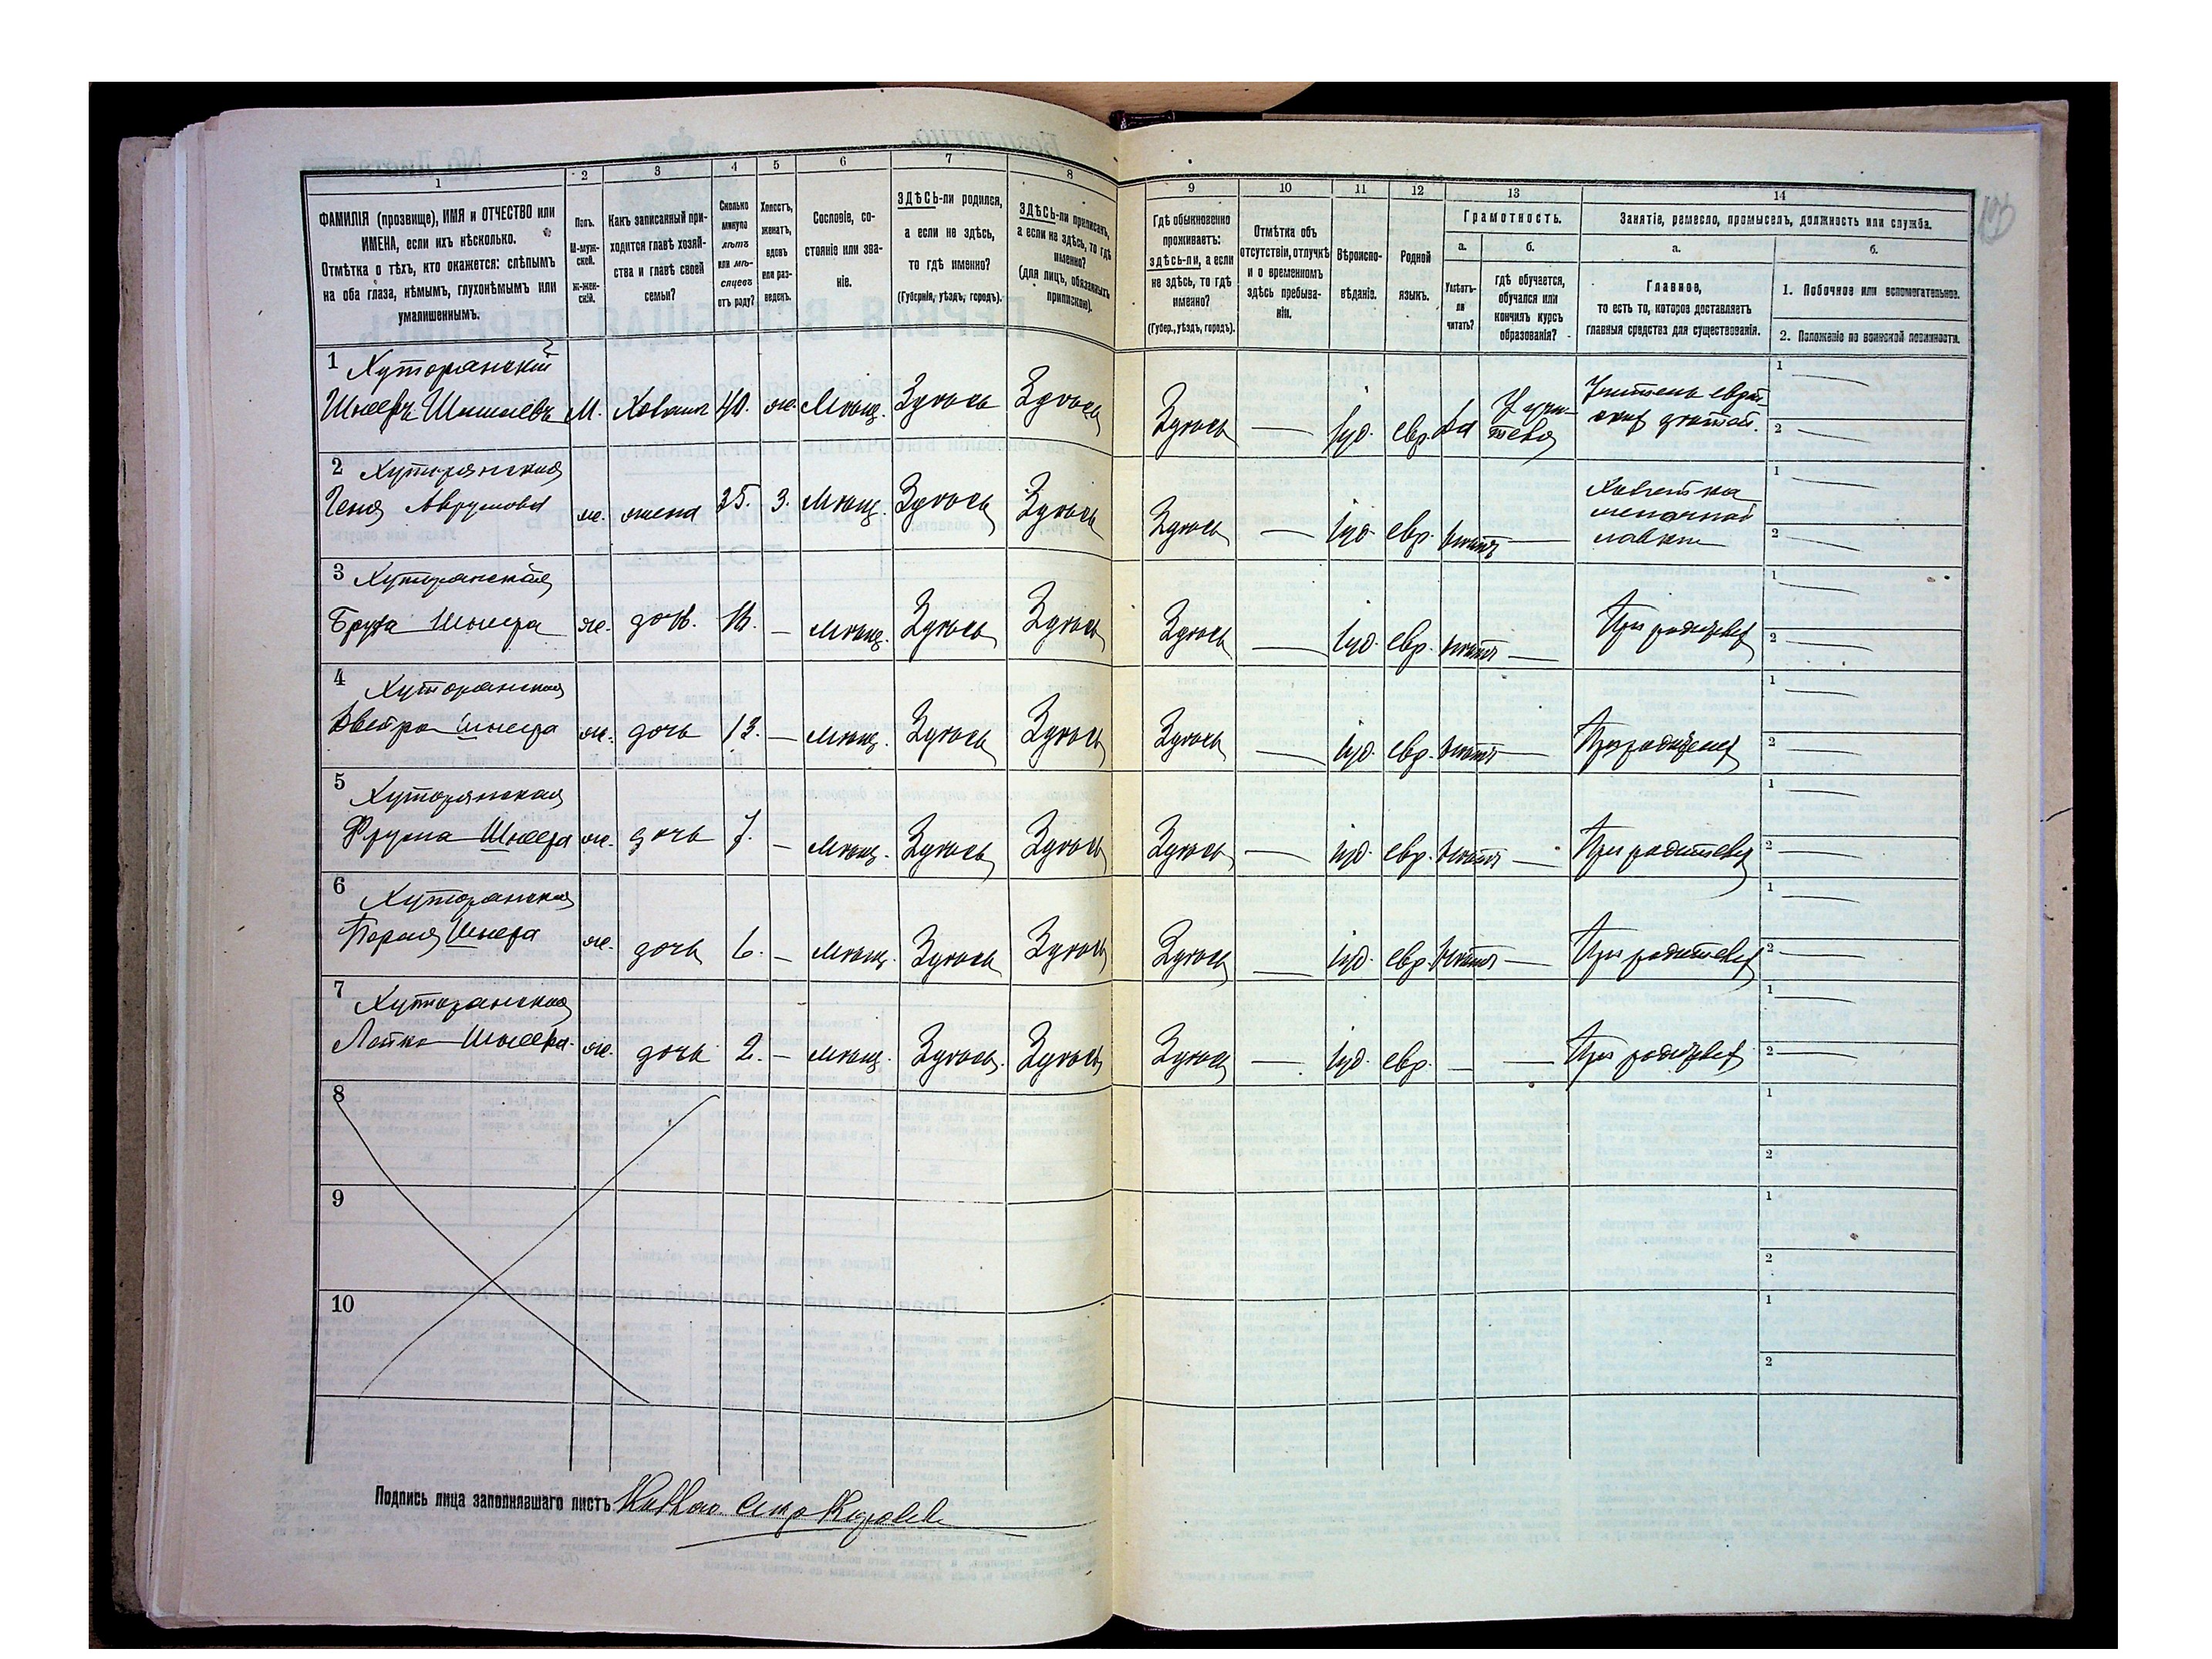 1 2 3 4 5 6 7 8 9 10 11 12 13 14
ФАМИЛІЯ (прозвище), ИМЯ и ОТЧЕСТВО или
ИМЕНА, если ихъ нѣсколько.
Отмѣтка о тѣхъ, кто окажется: слѣпымъ
на оба глаза, нѣмымъ, глухонѣмымъ или
умалишеннымъ.
Полъ.
М-муж-
ской.
ж-жен-
скій.
Какъ записанный при-
ходится главѣ хозяй-
ства и главѣ своей
семьи?
Сколько
минуло
лѣтъ
или мѣ-
сяцевъ
отъ роду?
Холостъ,
женатъ,
вдовъ
или раз-
веденъ.
Сословіе, со-
стояніе или зва-
ніе.
ЗДѢСЬ-ли родился,
а если не здѣсь,
то гдѣ именно?
(Губернія, уѣздъ, городъ).
ЗДѢСЬ-ли приписанъ,
а если не здѣсь, то гдѣ
именно?
(для лицъ, обязанныхъ
припискою).
Гдѣ обыкновенно
проживаетъ:
здѣсь-ли, а если
не здѣсь, то гдѣ
именно?
(Губер., уѣздъ, городъ).
Отмѣтка объ
отсутствіи, отлучкѣ
и о временномъ
здѣсь пребыва-
ніи.
Вѣроиспо-
вѣданіе.
Родной
языкъ.
Грамотность.
а. б.
Умѣетъ-
ли
читать?
гдѣ обучается,
обучался или
кончилъ курсъ
образованія?
Занятіе, ремесло, промыселъ, должность или служба.
а. б.
Главное,
то есть то, которое доставляетъ
главныя средства для существованія.
1. Побочное или вспомогательное.
2. Положеніе по воинской повинности.
1 Хуторянскій
М. Хозяинъ 40. ж. Мѣщ. Здѣсь Здѣсь Здѣсь — Іуд. евр. да
Учитель еврей-
1 —
2 —
2 Хуторянская
Геня Аврумова ж. жена 35. З. Мѣщ. Здѣсь Здѣсь Здѣсь — Іуд. евр. нѣтъ —
Хозяйка
мелочной
лавки
1 —
2 —
3 Хуторянская
ж. дочь — Мѣщ. Здѣсь Здѣсь Здѣсь — Іуд. евр. нѣтъ — При родителяхъ
1 —
2 —
4 Хуторянская
ж. дочь 13. — Мѣщ. Здѣсь Здѣсь Здѣсь — Іуд. евр. нѣтъ — При родителяхъ
1 —
2 —
5 Хуторянская
Фрума ж. дочь 7. — Мѣщ. Здѣсь Здѣсь Здѣсь — Іуд. евр. нѣтъ — При родителяхъ
1 —
2 —
6 Хуторянская
ж. дочь 6. — Мѣщ. Здѣсь Здѣсь Здѣсь — Іуд. евр. нѣтъ — При родителяхъ
1 —
2 —
7 Хуторянская
ж. дочь 2. — Мѣщ. Здѣсь Здѣсь Здѣсь — Іуд. евр. — — При родителяхъ
1 —
2 —
8
1
2
9
1
2
10
1
2
Подпись лица заполнявшаго листъ